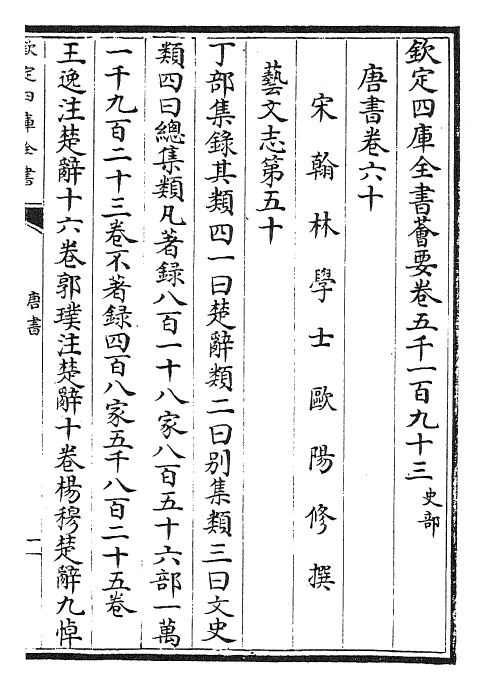 欽定四庫全書薈要卷五千一百九十三 史部
唐書卷六十
宋翰林學士歐陽修撰
藝文志第五十
丁部集錄其類四一曰楚辭類二曰別集類三曰文史
類四曰總集類凡著録八百一十八家八百五十六部一萬
一千九百二十三卷不著録四百八家五千八百二十五卷
王逸注楚辭十六卷郭璞注楚辭十卷楊穆楚辭九悼
欽定四庫全書
唐書
一